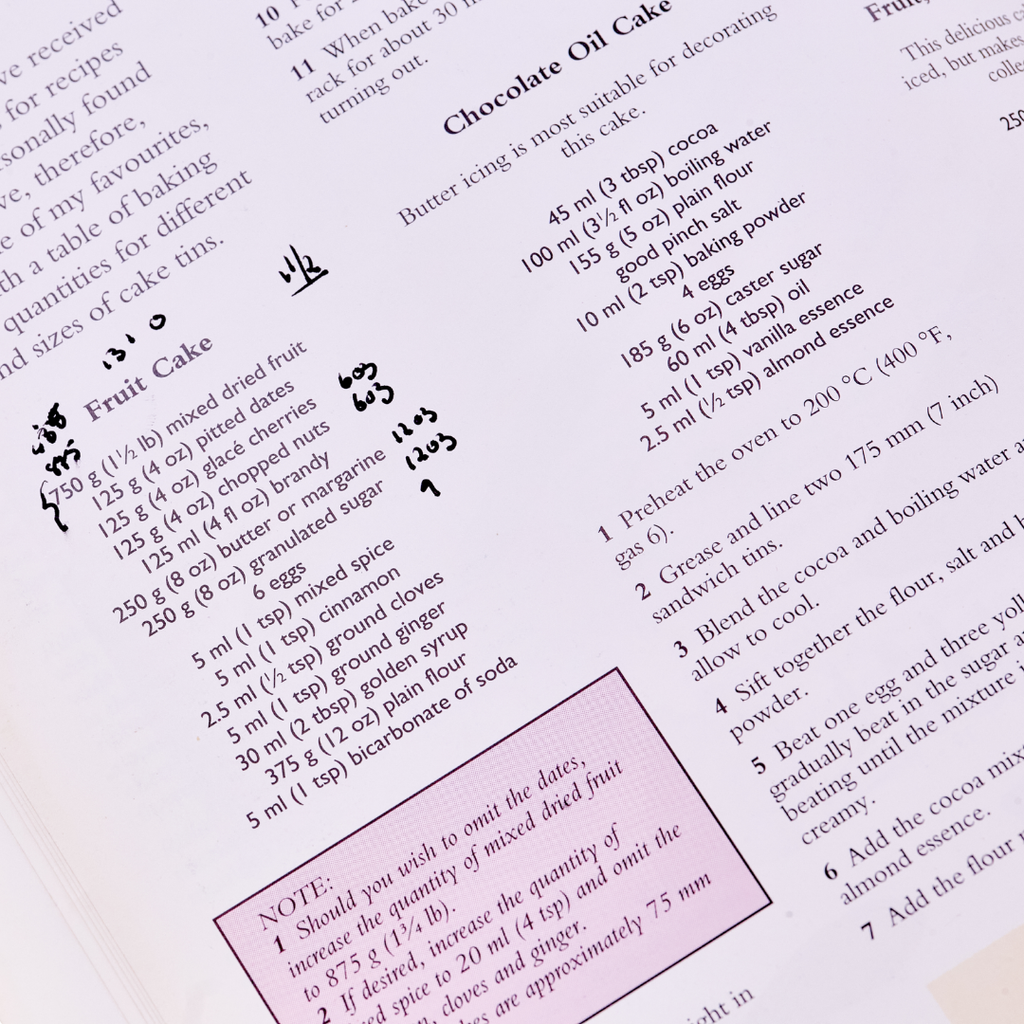 ve received
s for recipes
sonally found
ve, therefore,
e of my favourites,
th a table of baking
quantities for different
nd sizes of cake tins.
1 1/2
1310
Fruit Cake
750 g (1½ lb) mixed dried fruit
125 g (4 oz) pitted dates
125 g (4 oz) glacé cherries
125 g (4 oz) chopped nuts
125 ml (4 fl oz) brandy
250 g (8 oz) butter or margarine
250 g (8 oz) granulated sugar
6 eggs
5 ml (1 tsp) mixed spice
5 ml (1 tsp) cinnamon
2.5 ml (½ tsp) ground cloves
5 ml (1 tsp) ground ginger
30 ml (2 tbsp) golden syrup
375 g (12 oz) plain flour
5 ml (1 tsp) bicarbonate of soda
6oz
6oz
12oz
12oz
9
NOTE:
1 Should you wish to omit the dates,
increase the quantity of mixed dried fruit
to 875 g (1¾ lb).
2 If desired, increase the quantity of
ed spice to 20 ml (4 tsp) and omit the
, cloves and ginger.
es are approximately 75 mm
10
bake for
11 When bake
rack for about 30 m
turning out.
Chocolate Oil Cake
Butter icing is most suitable for decorating
this cake.
45 ml (3 tbsp) cocoa
100 ml (3½ fl oz) boiling water
155 g (5 oz) plain flour
good pinch salt
10 ml (2 tsp) baking powder
4 eggs
185 g (6 oz) caster sugar
60 ml (4 tbsp) oil
5 ml (1 tsp) vanilla essence
2.5 ml (½ tsp) almond essence
1 Preheat the oven to 200 °C (400 °F,
gas 6).
2 Grease and line two 175 mm (7 inch)
sandwich tins.
3 Blend the cocoa and boiling water a
allow to cool.
4 Sift together the flour, salt and b
powder.
5 Beat one egg and three yol
gradually beat in the sugar a
beating until the mixture i
creamy.
6 Add the cocoa mix
almond essence.
7 Add the flour
ight in
Fruit,
This delicious c
iced, but makes
colle
250